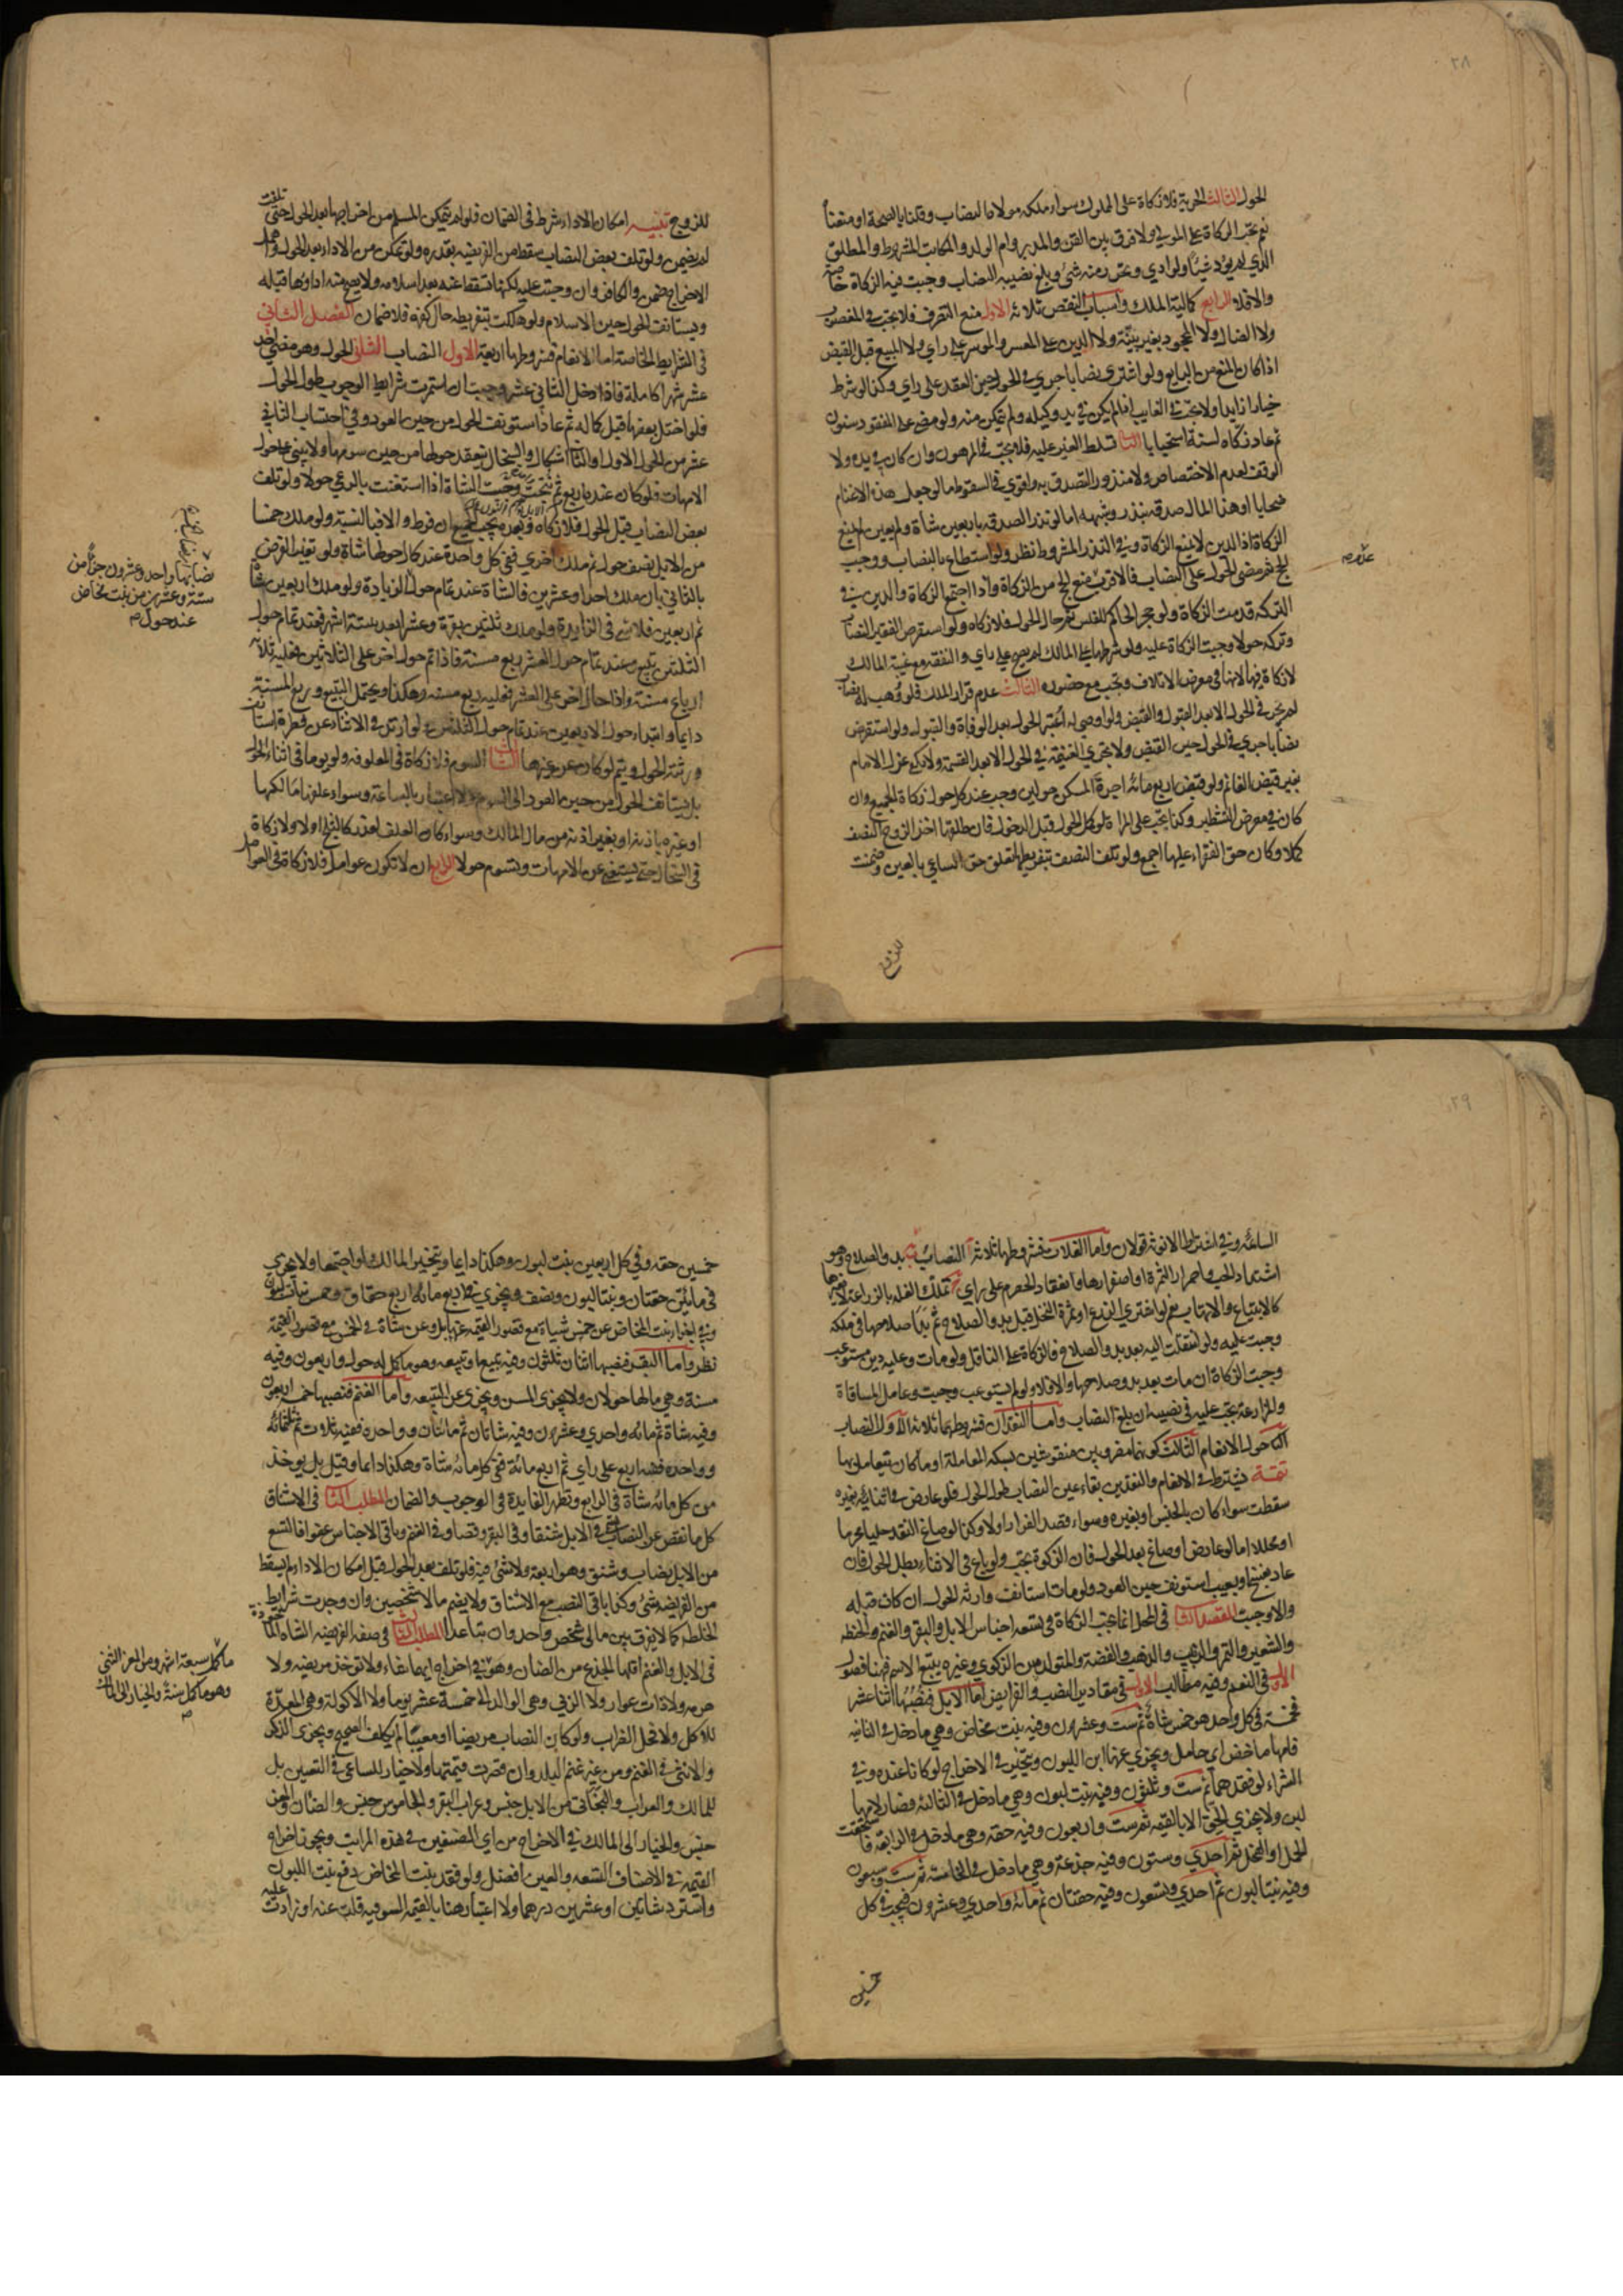 ٢٨
الحول الثالث الحرية فلا زكاة على المملوك سواء ملكه مولاه النصاب وقلنا بالصحة او منعنا
نعم تجب الزكاة على المولى ولا فرق بين القن والمدبر وام الولد والمكاتب المشروط والمطلق
الذي لم يؤد شيئا ولو ادى وتحرر منه شئ وبلغ نصيبه النصاب وجبت فيه الزكاة خاصة
والا فلا الرابع كمالية الملك واسباب النقص ثلاثة الاول منع التصرف فلا تجب في المغصوب
ولا الضال ولا المجحود بغير بينة ولا الدين على المعسر والموسر على راي ولا المبيع قبل القبض
اذا كان المنع من البايع ولو اشترى نصابا جرى في الحول حين العقد على راي وكذا لو شرط
خيارا زايدا ولا تجب في الغايب اذا لم يكن في يد وكيله ولم يتمكن منه ولو مضى على المفقود سنون
ثم عاد زكاه لسنة استحبابا الثاني تسلط الغير عليه فلا تجب في المرهون وان كان في يده ولا
الوقف لعدم الاختصاص ولا منذور التصدق به واقوى في السقوط ما لو جعل هذه الاغنام
ضحايا او هذا المال صدقة بنذر وشبهه اما لو نذر الصدقة باربعين شاة ولم يعين لم يمنع
الزكاة اذ الدين لا يمنع الزكاة وفي النذر المشروط نظر ولو استطاع بالنصاب ووجب
الحج ثم مضى الحول على النصاب فالاقرب منع الحج من الزكاة واذا اجتمع الزكاة والدين في
التركة قدمت الزكاة ولو حجر الحاكم للفلس ثم حال الحول فلا زكاة ولو استقرض الفقير النصاب
وتركه حولا وجبت الزكاة عليه ولو شرطها على المالك لم يصح على راي والنفقة مع غيبة المالك
لا زكاة فيها لانها في معرض الاتلاف وتجب مع حضوره الثالث عدم قرار الملك فلو وهب له نصاب
لم يجر في الحول الا بعد القبول والقبض ولو اوصي له اعتبر الحول بعد الوفاة والقبول ولو استقرض
نصابا جرى في الحول حين القبض ولا تجري الغنيمة في الحول الا بعد القسمة ولا يكفي عزل الامام
بغير قبض الغانم ولو قبض اربع مائة اجرة المسكن حولين وجب عند كل حول زكاة الجميع وان
كان في معرض التشطير وكذا تجب على المراة لو كمل الحول قبل الدخول فان طلقها اخذ الزوج النصف
كملا وكان حق الفقراء عليها اجمع ولو تلف النصف بتفريطها تعلق حق الساعي بالعين وضمنت
للزوج
للزوج تنبيه امكان الاداء شرط في الضمان فلو لم يتمكن المسلم من اخراجها بعد الحول حتى تلفت
لم يضمن ولو تلف بعض النصاب سقط من الفريضة بقدره ولو تمكن من الاداء بعد الحول واهمل
الاخراج ضمن والكافر وان وجبت عليه لكنها تسقط عنه بعد اسلامه ولا يصح منه اداؤها قبله
ويستانف الحول حين الاسلام ولو هلكت بتفريطه حال كفره فلا ضمان الفصل الثاني
في الشرايط الخاصة اما الانعام فشروطها اربعة الاول النصاب الثاني الحول وهو مضي احد
عشر شهرا كاملة فاذا دخل الثاني عشر وجبت ان استمرت شرايط الوجوب طول الحول
فلو اختل بعضها قبل كماله ثم عاد استونف الحول من حين العود وفي احتساب الثاني
عشر من الحول الاول او الثاني اشكال والسخال ينعقد حولها من حين سومها ولا يبنى على حول
الامهات فلو كان عنده اربع ثم نتجت وجبت الشاة اذا استغنت بالرعي حولا ولو تلف
بعض النصاب قبل الحول فلا زكاة وبعده يجب الجميع ان فرط والا فبالنسبة ولو ملك خمسا
من الابل نصف حول ثم ملك اخرى ففي كل واحدة عند كمال حولها شاة ولو تغير الفرض
بالثاني بان ملك احدا وعشرين فالشاة عند تمام حولها الزيادة ولو ملك اربعين شاة
ثم اربعين فلا شئ في الزايدة ولو ملك ثلثين بقرة وعشرا بعد ستة اشهر فعند تمام حول
الثلثين تبيع وعند تمام حول العشر ربع مسنة فاذا تم حول اخر على الثلاثين فعليه ثلاثة
ارباع مسنة واذا حال اخر على العشر فعليه ربع مسنة وهكذا ويحتمل التبيع وربع المسنة
دايما وابتداء حول الاربعين عند تمام حول الثلثين ولو ارتد في الاثناء عن فطرة استانف
ورثته الحول ويتم لو كان عن غيرها الثالث السوم فلا زكاة في المعلوفة ولو يوما في اثناء الحول
بل يستانف الحول من حين العود الى السوم ولا اعتبار بالساعة وسواء علفها مالكها
او غيره باذنه او بغير اذنه من مال المالك وسواء كان العلف لعذر كالثلج او لا ولا زكاة
في السخال حتى يستغنى عن الامهات وتسوم حولا الرابع ان لا تكون عوامل فلا زكاة في العوامل
نصابها واحد وعشرون جزءا من
ستة وعشرين من بنت مخاض
عند حول
٢٩
السائمة وفي اشتراط الانوثة قولان واما الغلات فشروطها ثلاثة ا النصاب ب بدو الصلاح وهو
اشتداد الحب واحمرار الثمرة او اصفرارها وانعقاد الحصرم على راي ج تملك الغلة بالزراعة لا بغيرها
كالابتياع والاتهاب نعم لو اشترى الزرع او ثمرة النخل قبل بدو الصلاح ثم بدا صلاحها في ملكه
وجبت عليه ولو انتقلت اليه بعد بدو الصلاح فالزكاة على الناقل ولو مات وعليه دين مستوعب
وجبت الزكاة ان مات بعد بدو صلاحها والا فلا ولو لم يستوعب وجبت وعامل المساقاة
والمزارعة تجب عليه في نصيبه ان بلغ النصاب واما النقدان فشروطهما ثلاثة الاول النصاب
الثاني حول الانعام الثالث كونهما مضروبين منقوشين بسكة المعاملة او ما كان يتعامل بها
تتمة يشترط في الانعام والنقدين بقاء عين النصاب طول الحول فلو عاوض في اثنائه بغيره
سقطت سواء كان بالجنس او بغيره وسواء قصد الفرار اولا وكذا لو صاغ النقد حليا محرما
او محللا اما لو عاوض او صاغ بعد الحول فان الزكوة تجب ولو باع في الاثناء بطل الحول فان
عاد بفسخ او بعيب استونف حين العود ولو مات استانف وارثه الحول ان كان قبله
والا وجبت المقصد الثاني في المحل انما تجب الزكاة في تسعة اجناس الابل والبقر والغنم والحنطة
والشعير والتمر والزبيب والذهب والفضة والمتولد بين الزكوي وغيره يتبع الاسم فهنا فصول
الاول في النعم وفيه مطالب الاول في مقادير النصب والفرايض اما الابل فنصبها اثنا عشر
خمسة في كل واحد هو خمس شاة ثم ست وعشرون وفيه بنت مخاض وهي ما دخل في الثانية
فامها ماخض اي حامل ويجزي عنها ابن اللبون ويتخير في الاخراج لو كانا عنده وفي
الشراء لو فقدهما ثم ست وثلثون وفيه بنت لبون وهي ما دخل في الثالثة فصار لامها
لبن ولا يجزي الحق الا بالقيمة ثم ست واربعون وفيه حقة وهي ما دخل في الرابعة فاستحقت
الحمل او الفحل ثم احدي وستون وفيه جذعة وهي ما دخل في الخامسة ثم ست وسبعون
وفيه بنتا لبون ثم احدي وتسعون وفيه حقتان ثم مائة واحدي وعشرون فيجب في كل
خمسين
خمسين حقة وفي كل اربعين بنت لبون وهكذا دايما ويتخير المالك لو اجتمعا ولا يجزي
في مائتين حقتان وبنتا لبون ونصف ويجزي في اربع مائة اربع حقاق وخمس بنات لبون
وفي اجزاء بنت المخاض عن خمس شياة مع قصور القيمة عنها بل وعن شاة في الخمس مع قصور القيمة
نظر واما البقر فنصبها اثنان ثلثون وفيه تبيع او تبيعة وهو ما كمل له حول واربعون وفيه
مسنة وهي ما لها حولان ولا يجزى المسن ويجزى عن التبيعة واما الغنم فنصبها خمسة اربعون
وفيه شاة ثم مائة واحدي وعشرون وفيه شاتان ثم مائتان وواحدة ففيه ثلاث ثم ثلثمائة
وواحدة ففيه اربع على راي ثم اربع مائة ففي كل مائة شاة وهكذا دايما وقيل بل يوخذ
من كل مائة شاة في الرابع وتظهر الفايدة في الوجوب والضمان المطلب الثاني في الاشناق
كل ما نقص عن النصاب يسمى في الابل شنقا وفي البقر وقصا وفي الغنم وباقي الاجناس عفوا فالتسع
من الابل نصاب وشنق وهو اربعة ولا شئ فيه فلو تلف بعد الحول قبل امكان الاداء لم يسقط
من الفريضة شئ وكذا باقي النصب مع الاشناق ولا يضم مال الشخصين وان وجدت شرايط
الخلطة كما لا يفرق بين مالي شخص واحد وان تباعدا المطلب الثالث في صفة الفريضة الشاة الماخوذة
في الابل والغنم اقلها الجذع من الضان وهو في اخراج ايهما شاء ولا توخذ مريضة ولا
هرمة ولا ذات عوار ولا الربى وهي الوالد الى خمسة عشر يوما ولا الاكولة وهي المعدة
للاكل ولا فحل الضراب ولو كان النصاب مريضا او معيبا لم يكلف الصحيح ويجزى الذكر
والانثى في الغنم ومن غير غنم البلد وان قصرت قيمتها ولا خيار للساعي في التعيين بل
للمالك والعراب والبخاتي من الابل جنس وعراب البقر والجاموس جنس والضان والمعز
جنس والخيار الى المالك في الاخراج من اي الصنفين في هذه المراتب ويجوز اخراج
القيمة في الاصناف التسعة والعين افضل ولو فقد بنت المخاض دفع بنت اللبون
واسترد شاتين او عشرين درهما ولا اعتبار هنا بالقيمة السوقية قلت عنه او زادت عليه
ما كمل سبعة اشهر ومن المعز الثني
وهو ما كمل سنة والخيار الى المالك